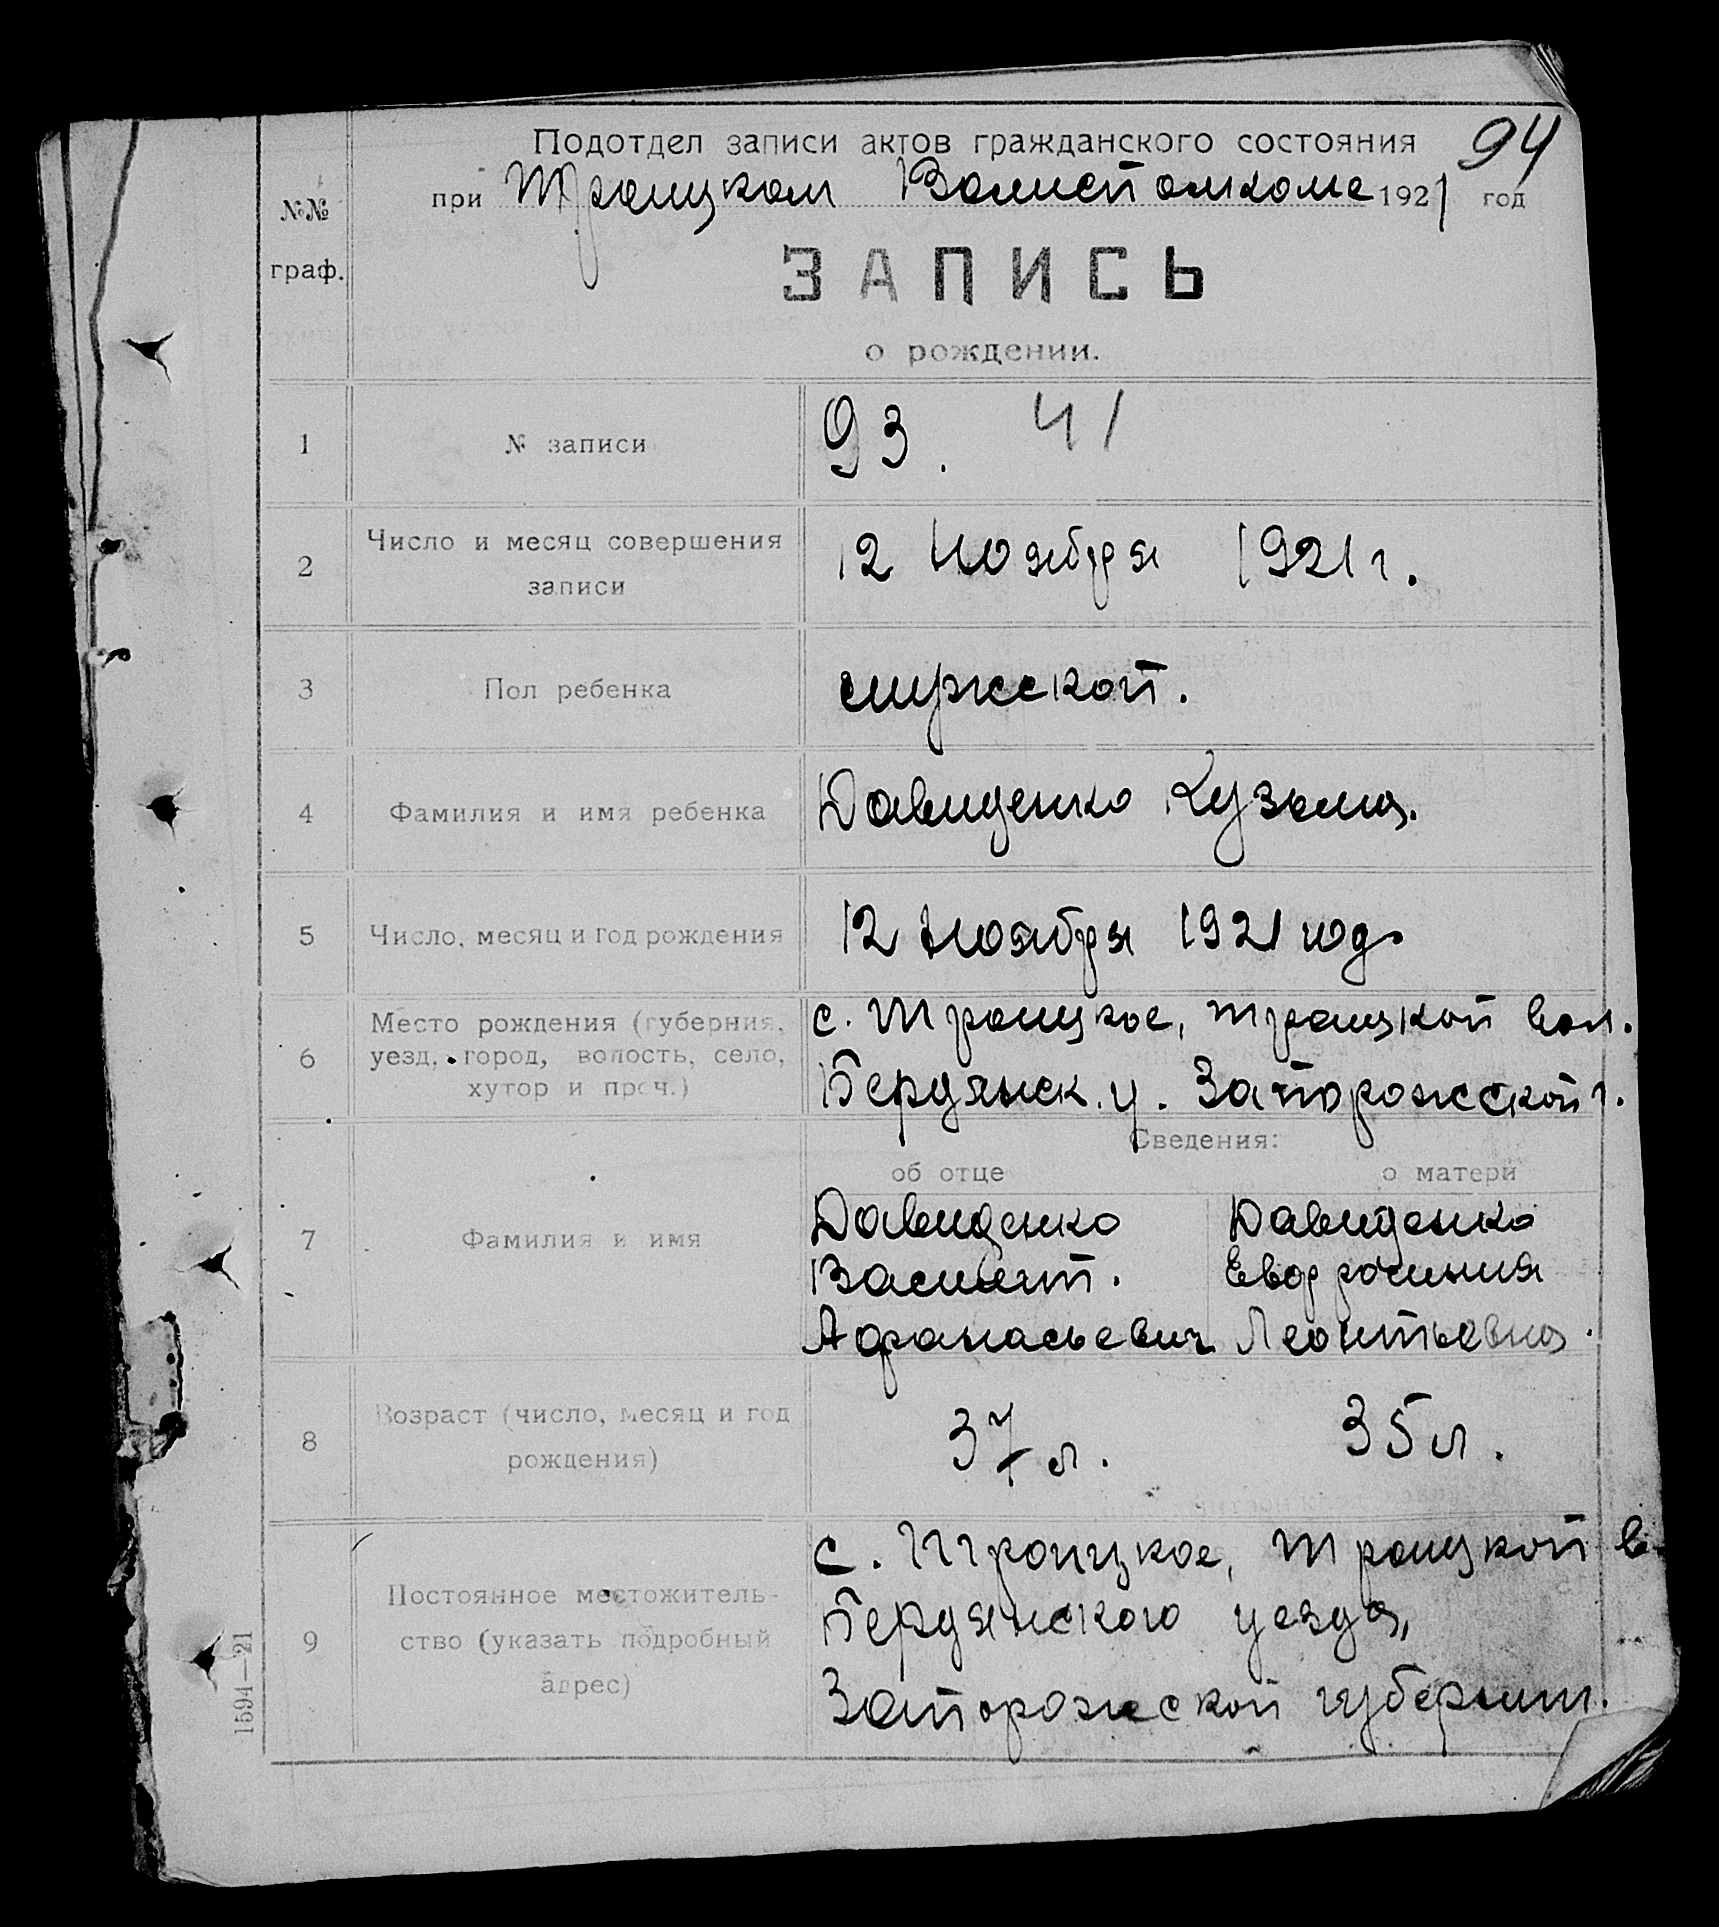 94
Подотдел записи актов гражданского состояния
при Троицком Волисполкоме 1921 год
№№ граф.
ЗАПИСЬ
о рождении.
1 № записи 93. 41
2 Число и месяц совершения записи 12 ноября 1921 г.
3 Пол ребенка мужской.
4 Фамилия и имя ребенка Давиденко Кузьма.
5 Число, месяц и год рождения 12 ноября 1921 года
6 Место рождения (губерния, уезд, город, волость, село, хутор и проч.)
с. Троицкое, Троицкой вол.
Бердянск. у. Запорожской г.
Сведения:
об отце о матери
7 Фамилия и имя
Давиденко Давиденко
Василий. Евфросиния
Афанасьевич Леонтьевна.
8 Возраст (число, месяц и год рождения) 37 л. 35 л.
9 Постоянное местожительство (указать подробный адрес)
с. Троицкое, Троицкой в.
Бердянского уезда,
Запорожской губернии.
1594—21